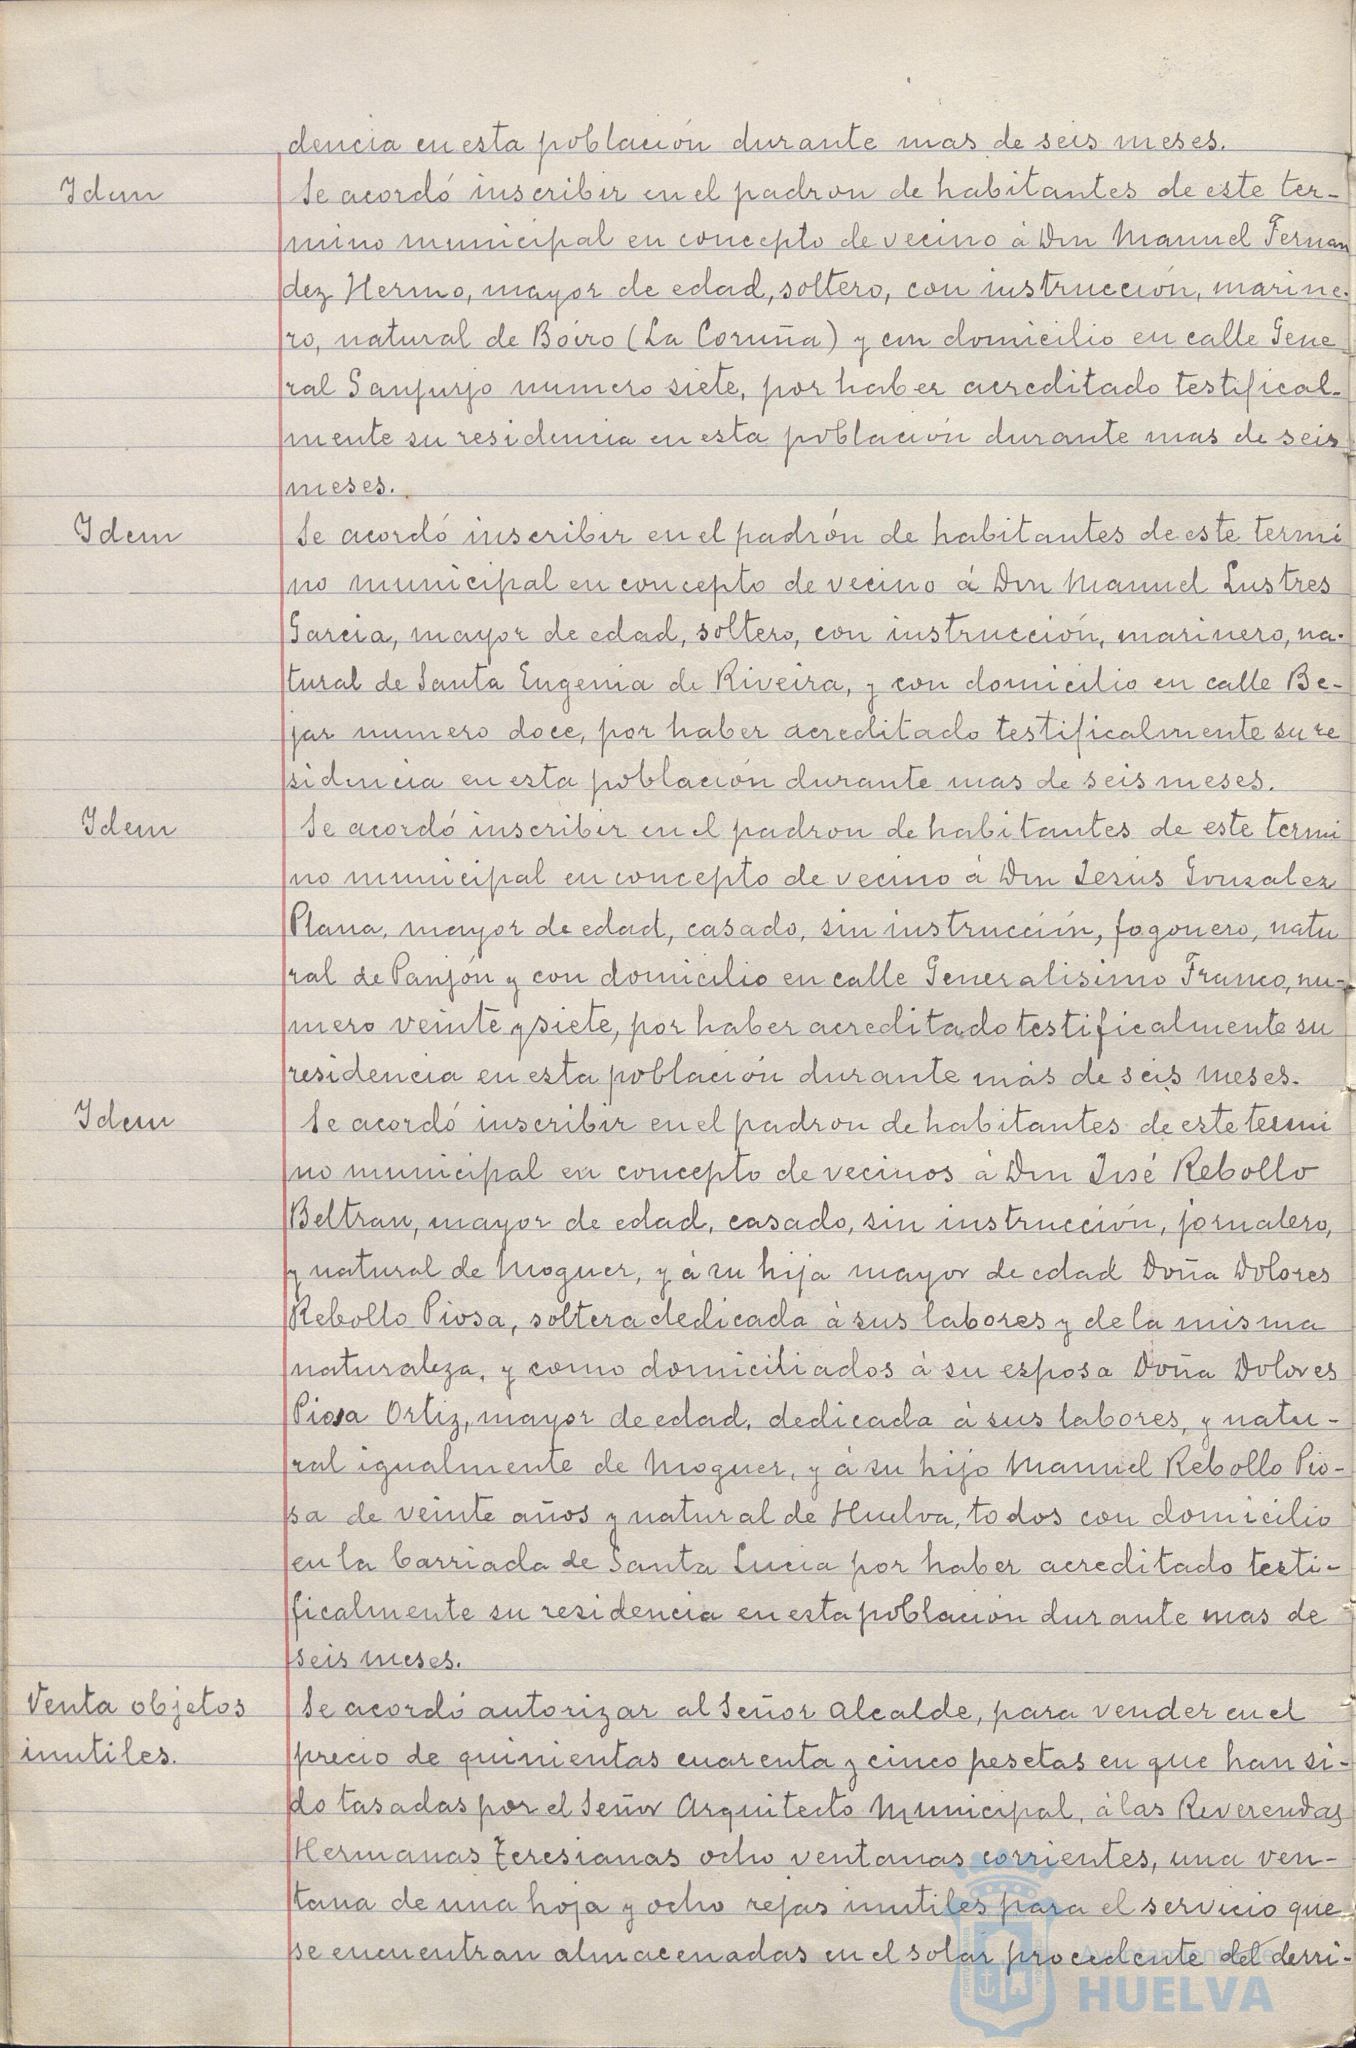 dencia en esta población durante mas de seis meses.
Idem
Se acordó inscribir en el padron de habitantes de este ter-
mino municipal en concepto de vecino á Don Manuel Fernan
dez Hermo, mayor de edad, soltero, con instrucción, marine-
ro, natural de Boiro (La Coruña) y con domicilio en calle Gene-
ral Sanjurjo numero siete, por haber acreditado testifical-
mente su residencia en esta población durante mas de seis
meses.
Idem
Se acordó inscribir en el padrón de habitantes de este termi
no municipal en concepto de vecino á Don Manuel Lustres
Garcia, mayor de edad, soltero, con instrucción, marinero, na-
tural de Santa Eugenia de Riveira, y con domicilio en calle Be-
jar numero doce, por haber acreditado testificalmente su re
sidencia en esta población durante mas de seis meses.
Idem
Se acordó inscribir en el padron de habitantes de este termi
no municipal en concepto de vecino á Don Jesús Gonzalez
Plana, mayor de edad, casado, sin instrucción, fogonero, natu
ral de Panjón y con domicilio en calle Generalisimo Franco, nu-
mero veinte y siete, por haber acreditado testificalmente su
residencia en esta población durante más de seis meses.
Idem
Se acordó inscribir en el padron de habitantes de este termi
no municipal en concepto de vecinos á Don José Rebollo
Beltran, mayor de edad, casado, sin instrucción, jornalero,
y natural de Moguer, y á su hija mayor de edad Doña Dolores
Rebollo Piosa, soltera dedicada á sus labores y de la misma
naturaleza, y como domiciliados á su esposa Doña Dolores
Piosa Ortiz, mayor de edad, dedicada á sus labores, y natu-
ral igualmente de Moguer, y á su hijo Manuel Rebollo Pio-
sa de veinte años y natural de Huelva, todos con domicilio
en la barriada de Santa Lucia por haber acreditado testi-
ficalmente su residencia en esta población durante mas de
seis meses.
Venta objetos
inutiles.
Se acordó autorizar al Señor Alcalde, para vender en el
precio de quinientas cuarenta y cinco pesetas en que han si-
do tasadas por el Señor Arquitecto Municipal, á las Reverendas
Hermanas Teresianas ocho ventanas corrientes, una ven-
tana de una hoja y ocho rejas inutiles para el servicio que
se encuentran almacenadas en el solar procedente del derri-
Ayuntamiento de
HUELVA